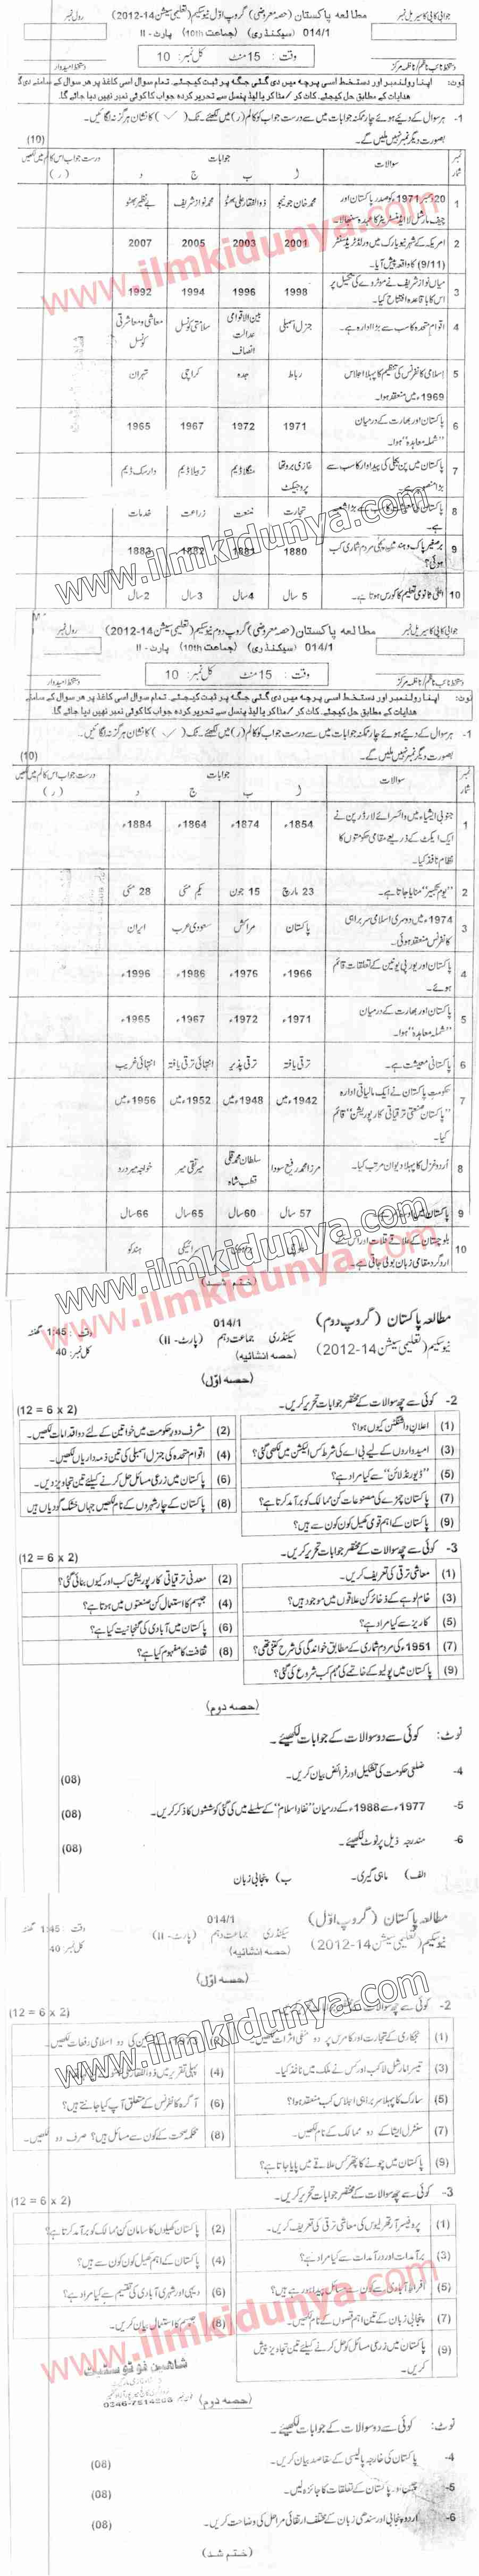 جوابی کاپی کا سیریل نمبر
مطالعہ پاکستان (حصہ معروضی) گروپ اوّل نیو سکیم (تعلیمی سیشن 14-2012)
رول نمبر
014/1 (سیکنڈری) (جماعت 10th) پارٹ - II
وقت : 15 منٹ کل نمبر: 10
نوٹ: اپنا رولنمبر اور دستخط اسی پرچہ میں دی گئی جگہ پر ثبت کیجئے۔ تمام سوال اسی کاغذ پر ہر سوال کے سامنے دی گئی
ہدایات کے مطابق حل کیجئے۔ کاٹ کر / مٹا کر یا لیڈ پنسل سے تحریر کردہ جواب کا کوئی نمبر نہیں دیا جائے گا۔
1- ہر سوال کے دیئے ہوئے چار ممکنہ جوابات میں سے درست جواب کو کالم (ر) میں لکھیں۔ ٹک ( ✓ ) کا نشان ہرگز نہ لگائیں۔
بصورت دیگر نمبر نہیں ملیں گے۔ (10)
نمبر شمار سوالات جوابات درست جواب اس کالم میں لکھیں (ر)
1 20 دسمبر 1971ء کو صدر پاکستان اور چیف مارشل لاء ایڈمنسٹریٹر کا عہدہ سنبھالا۔ محمد خان جونیجو ذوالفقار علی بھٹو محمد نواز شریف بے نظیر بھٹو
2 امریکہ کے شہر نیویارک میں ورلڈ ٹریڈ سنٹر (9/11) کا واقعہ پیش آیا۔ 2001 2003 2005 2007
3 میاں نواز شریف نے موٹر وے کی تکمیل پر اس کا باقاعدہ افتتاح کیا۔ 1998 1996 1994 1992
4 اقوام متحدہ کا سب سے بڑا ادارہ ہے۔ جنرل اسمبلی بین الاقوامی عدالت انصاف سلامتی کونسل معاشی و معاشرتی کونسل
5 اسلامی کانفرنس کی تنظیم کا پہلا اجلاس 1969ء میں منعقد ہوا۔ رباط جدہ کراچی تہران
6 پاکستان اور بھارت کے درمیان "شملہ معاہدہ" ہوا۔ 1971 1972 1967 1965
7 پاکستان میں پن بجلی کی پیداوار کا سب سے بڑا منصوبہ ہے۔ غازی بروتھا پروجیکٹ منگلا ڈیم تربیلا ڈیم وارسک ڈیم
8 پاکستان کی معیشت کا سب سے بڑا شعبہ ہے۔ تجارت صنعت زراعت خدمات
9 برصغیر پاک و ہند میں پہلی مردم شماری کب ہوئی؟ 1880 1881 1882 1883
10 اعلیٰ ثانوی تعلیم کا کورس ہوتا ہے۔ 5 سال 4 سال 3 سال 2 سال
www.ilmkidunya.com
www.ilmkidunya.com
جوابی کاپی کا سیریل نمبر
مطالعہ پاکستان (حصہ معروضی) گروپ دوم نیو سکیم (تعلیمی سیشن 14-2012)
رول نمبر
014/1 (سیکنڈری) (جماعت 10th) پارٹ - II
وقت : 15 منٹ کل نمبر: 10
نوٹ: اپنا رولنمبر اور دستخط اسی پرچہ میں دی گئی جگہ پر ثبت کیجئے۔ تمام سوال اسی کاغذ پر ہر سوال کے سامنے
ہدایات کے مطابق حل کیجئے۔ کاٹ کر / مٹا کر یا لیڈ پنسل سے تحریر کردہ جواب کا کوئی نمبر نہیں دیا جائے گا۔
1- ہر سوال کے دیئے ہوئے چار ممکنہ جوابات میں سے درست جواب کو کالم (ر) میں لکھیں۔ ٹک ( ✓ ) کا نشان ہرگز نہ لگائیں۔
بصورت دیگر نمبر نہیں ملیں گے۔ (10)
نمبر شمار سوالات جوابات درست جواب اس کالم میں لکھیں (ر)
1 جنوبی ایشیاء میں وائسرائے لارڈ رپن نے ایک ایکٹ کے ذریعے مقامی حکومتوں کا نظام نافذ کیا۔ 1854ء 1874ء 1864ء 1884ء
2 "یوم تکبیر" منایا جاتا ہے۔ 23 مارچ 15 جون یکم مئی 28 مئی
3 1974ء میں دوسری اسلامی سربراہی کانفرنس منعقد ہوئی۔ پاکستان مراکش سعودی عرب ایران
4 پاکستان اور یورپی یونین کے تعلقات قائم ہوئے۔ 1966ء 1976ء 1986ء 1996ء
5 پاکستان اور بھارت کے درمیان "شملہ معاہدہ" ہوا۔ 1971ء 1972ء 1967ء 1965ء
6 پاکستانی معیشت ہے۔ ترقی یافتہ ترقی پذیر انتہائی ترقی یافتہ انتہائی غریب
7 حکومت پاکستان نے ایک مالیاتی ادارہ "پاکستان صنعتی ترقیاتی کارپوریشن" قائم کیا۔ 1942ء میں 1948ء میں 1952ء میں 1956ء میں
8 اُردو غزل کا پہلا دیوان مرتب کیا۔ مرزا محمد رفیع سودا سلطان محمد قلی قطب شاہ میر تقی میر خواجہ میر درد
9 پاکستان میں 57 سال 60 سال 65 سال 66 سال
10 بلوچستان کے علاقے قلات اور اس کے اردگرد مقامی زبان بولی جاتی ہے۔ سرائیکی ہندکو
(ختم شد)
www.ilmkidunya.com
مطالعہ پاکستان (گروپ دوم) 014/1 سیکنڈری جماعت دہم (پارٹ- II) وقت : 1:45 گھنٹے
نیو سکیم (تعلیمی سیشن 14-2012) (حصہ انشائیہ) کل نمبر: 40
(حصہ اوّل)
2- کوئی سے چھ سوالات کے مختصر جوابات تحریر کریں۔ (12 = 6 x 2)
(1) اعلان واشنگٹن کیوں ہوا؟ (2) مشرف دور حکومت میں خواتین کے لئے دو اقدامات لکھیں۔
(3) امیدواروں کے لیے بی اے کی شرط کس الیکشن میں رکھی گئی؟ (4) اقوام متحدہ کی جنرل اسمبلی کی تین ذمہ داریاں لکھیں۔
(5) "ڈیورنڈ لائن" سے کیا مراد ہے؟ (6) پاکستان میں زرعی مسائل حل کرنے کیلئے تین تجاویز دیں۔
(7) پاکستان چمڑے کی مصنوعات کن ممالک کو برآمد کرتا ہے؟ (8) پاکستان کے چار شہروں کے نام لکھیں جہاں خشک گودیاں ہیں
(9) پاکستان کے اہم قومی کھیل کون کون سے ہیں؟
3- کوئی سے چھ سوالات کے مختصر جوابات تحریر کریں۔ (12 = 6 x 2)
(1) معاشی ترقی کی تعریف کریں۔ (2) معدنی ترقیاتی کارپوریشن کب اور کیوں بنائی گئی؟
(3) خام لوہے کے ذخائر کن علاقوں میں موجود ہیں؟ (4) جپسم کا استعمال کن صنعتوں میں ہوتا ہے؟
(5) کاریز سے کیا مراد ہے؟ (6) پاکستان میں آبادی کی گنجانیت کیا ہے؟
(7) 1951ء کی مردم شماری کے مطابق خواندگی کی شرح کتنی تھی؟ (8) ثقافت کا مفہوم کیا ہے؟
(9) پاکستان میں پولیو کے خاتمے کی مہم کب شروع کی گئی؟
(حصہ دوم)
نوٹ: کوئی سے دو سوالات کے جوابات لکھیئے۔
4- ضلعی حکومت کی تشکیل اور فرائض بیان کریں۔ (08)
5- 1977ء سے 1988ء کے درمیان "نفاذِ اسلام" کے سلسلے میں کی گئی کوششوں کا ذکر کریں۔ (08)
6- مندرجہ ذیل پر نوٹ لکھیئے۔ (08)
الف) ماہی گیری۔ ب) پنجابی زبان
مطالعہ پاکستان (گروپ اوّل) 014/1 سیکنڈری جماعت دہم (پارٹ- II) وقت : 1:45 گھنٹے
نیو سکیم (تعلیمی سیشن 14-2012) (حصہ انشائیہ) کل نمبر: 40
(حصہ اوّل)
2- کوئی سے چھ سوالات کے مختصر جوابات تحریر کریں۔ (12 = 6 x 2)
(1) نجکاری کے تجارت اور کامرس پر دو منفی اثرات لکھیں۔ کی دو اسلامی دفعات لکھیں۔
(3) تیسرا مارشل لاء کب اور کس نے ملک میں نافذ کیا۔ (4) پہلی تقریر میں ذوالفقار علی
(5) سارک کا پہلا سربراہی اجلاس کب منعقد ہوا؟ (6) آگرہ کانفرنس کے متعلق آپ کیا جانتے ہیں؟
(7) سنٹرل ایشیا کے دو ممالک کے نام لکھیں۔ (8) محکمہ صحت کے کون سے مسائل ہیں؟ صرف دو لکھیں۔
(9) پاکستان میں چونے کا پتھر کس علاقے میں پایا جاتا ہے؟
www.ilmkidunya.com
3- کوئی سے چھ سوالات کے مختصر جوابات تحریر کریں۔ (12 = 6 x 2)
(1) پروفیسر آرتھر لیوس کی معاشی ترقی کی تعریف کریں۔ (2) پاکستان کھیلوں کا سامان کن ممالک کو برآمد کرتا ہے؟
(3) برآمدات اور درآمدات سے کیا مراد ہے؟ (4) پاکستان کے اہم کھیل کون کون سے ہیں؟
(5) افراطِ آبادی سے کون سے مسائل پیدا ہو رہے ہیں؟ (6) دیہی اور شہری آبادی کی تقسیم سے کیا مراد ہے؟
(7) پنجابی زبان کے تین اہم قصوں کے نام لکھیں۔ (8) جپسم کا استعمال بیان کریں۔
(9) پاکستان میں زرعی مسائل کو حل کرنے کیلئے تین تجاویز پیش کریں۔
www.ilmkidunya.com
شاہین فوٹو سٹیٹ
(حصہ دوم)
نوٹ: کوئی سے دو سوالات کے جوابات لکھیئے۔
4- پاکستان کی خارجہ پالیسی کے مقاصد بیان کریں۔ (08)
5- چین اور پاکستان کے تعلقات کا جائزہ لیں۔ (08)
6- اردو پنجابی اور سندھی زبان کے مختلف ارتقائی مراحل کی وضاحت کریں۔ (08)
(ختم شد)